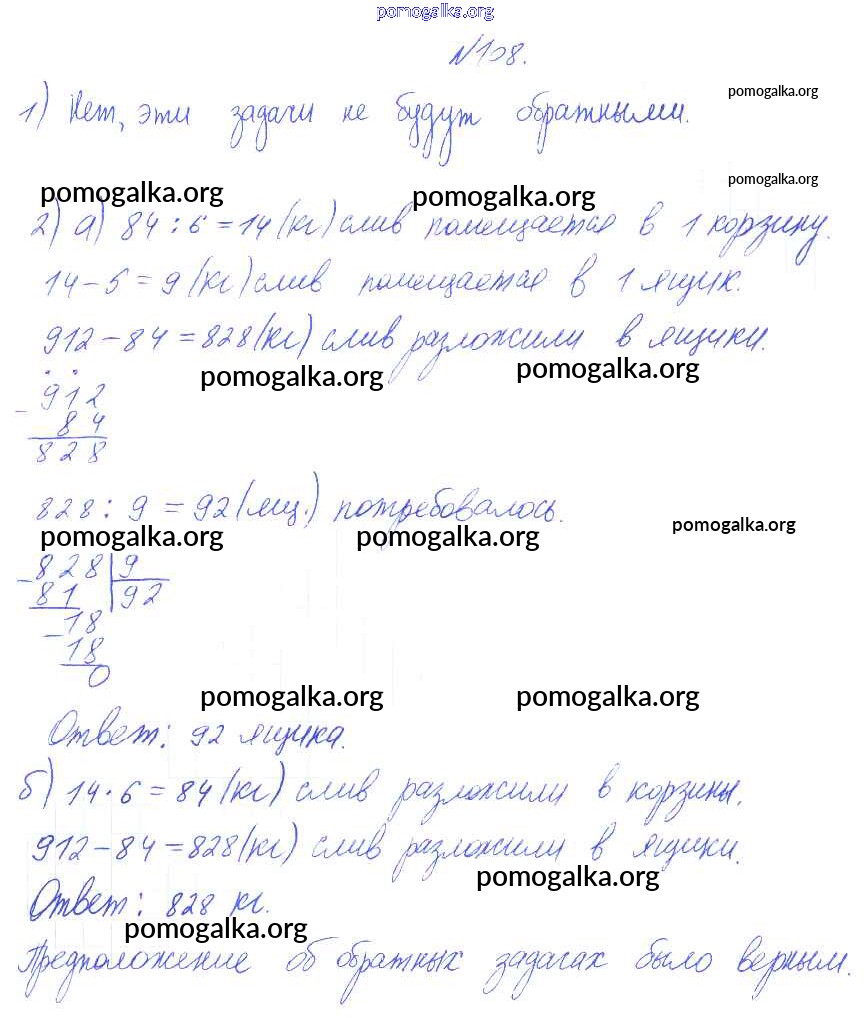 pomogalka.org
№108.
pomogalka.org
1) Нет, эти задачи не будут обратными.
pomogalka.org
pomogalka.org pomogalka.org
2) а) 84 : 6 = 14 (кг) слив помещается в 1 корзину.
14 - 5 = 9 (кг) слив помещается в 1 ящик.
912 - 84 = 828 (кг) слив разложили в ящики.
pomogalka.org pomogalka.org
- 912
84
828
828 : 9 = 92 (ящ.) потребовалось.
pomogalka.org pomogalka.org pomogalka.org
- 828 | 9
81 | 92
- 18
18
0
pomogalka.org pomogalka.org
Ответ: 92 ящика.
б) 14 · 6 = 84 (кг) слив разложили в корзины.
912 - 84 = 828 (кг) слив разложили в ящики.
pomogalka.org
Ответ: 828 кг.
pomogalka.org
Предположение об обратных задачах было верным.